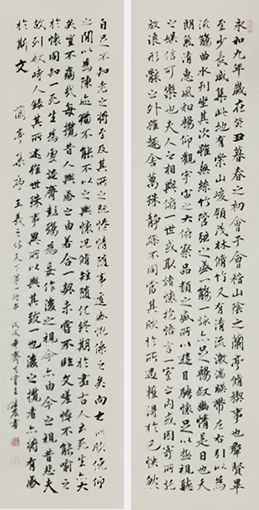 永和九年歲在癸丑暮春之初會于會稽山陰之蘭亭脩稧事也羣賢畢
至少長咸集此地有崇山峻領茂林脩竹又有清流激湍暎帶左右引以為
流觴曲水列坐其次雖無絲竹管弦之盛一觴一詠亦足以暢敘幽情是日也天
朗氣清惠風和暢仰觀宇宙之大俯察品類之盛所以遊目騁懷足以極視聽
之娛信可樂也夫人之相與俯仰一世或取諸懷抱悟言一室之內或因寄所託
放浪形骸之外雖趣舍萬殊靜躁不同當其欣於所遇暫得於己快然
自足不知老之將至及其所之既惓情隨事遷感慨係之矣向之所欣俛仰
之間以為陳迹猶不能不以之興懷況脩短隨化終期於盡古人云死生亦大
矣豈不痛哉每攬昔人興感之由若合一契未嘗不臨文嗟悼不能喻之
於懷固知一死生為虛誕齊彭殤為妄作後之視今亦由今之視昔悲夫
故列敘時人錄其所述雖世殊事異所以興懷其致一也後之攬者亦將有感
於斯文
蘭亭集序王羲之作天下第一行書